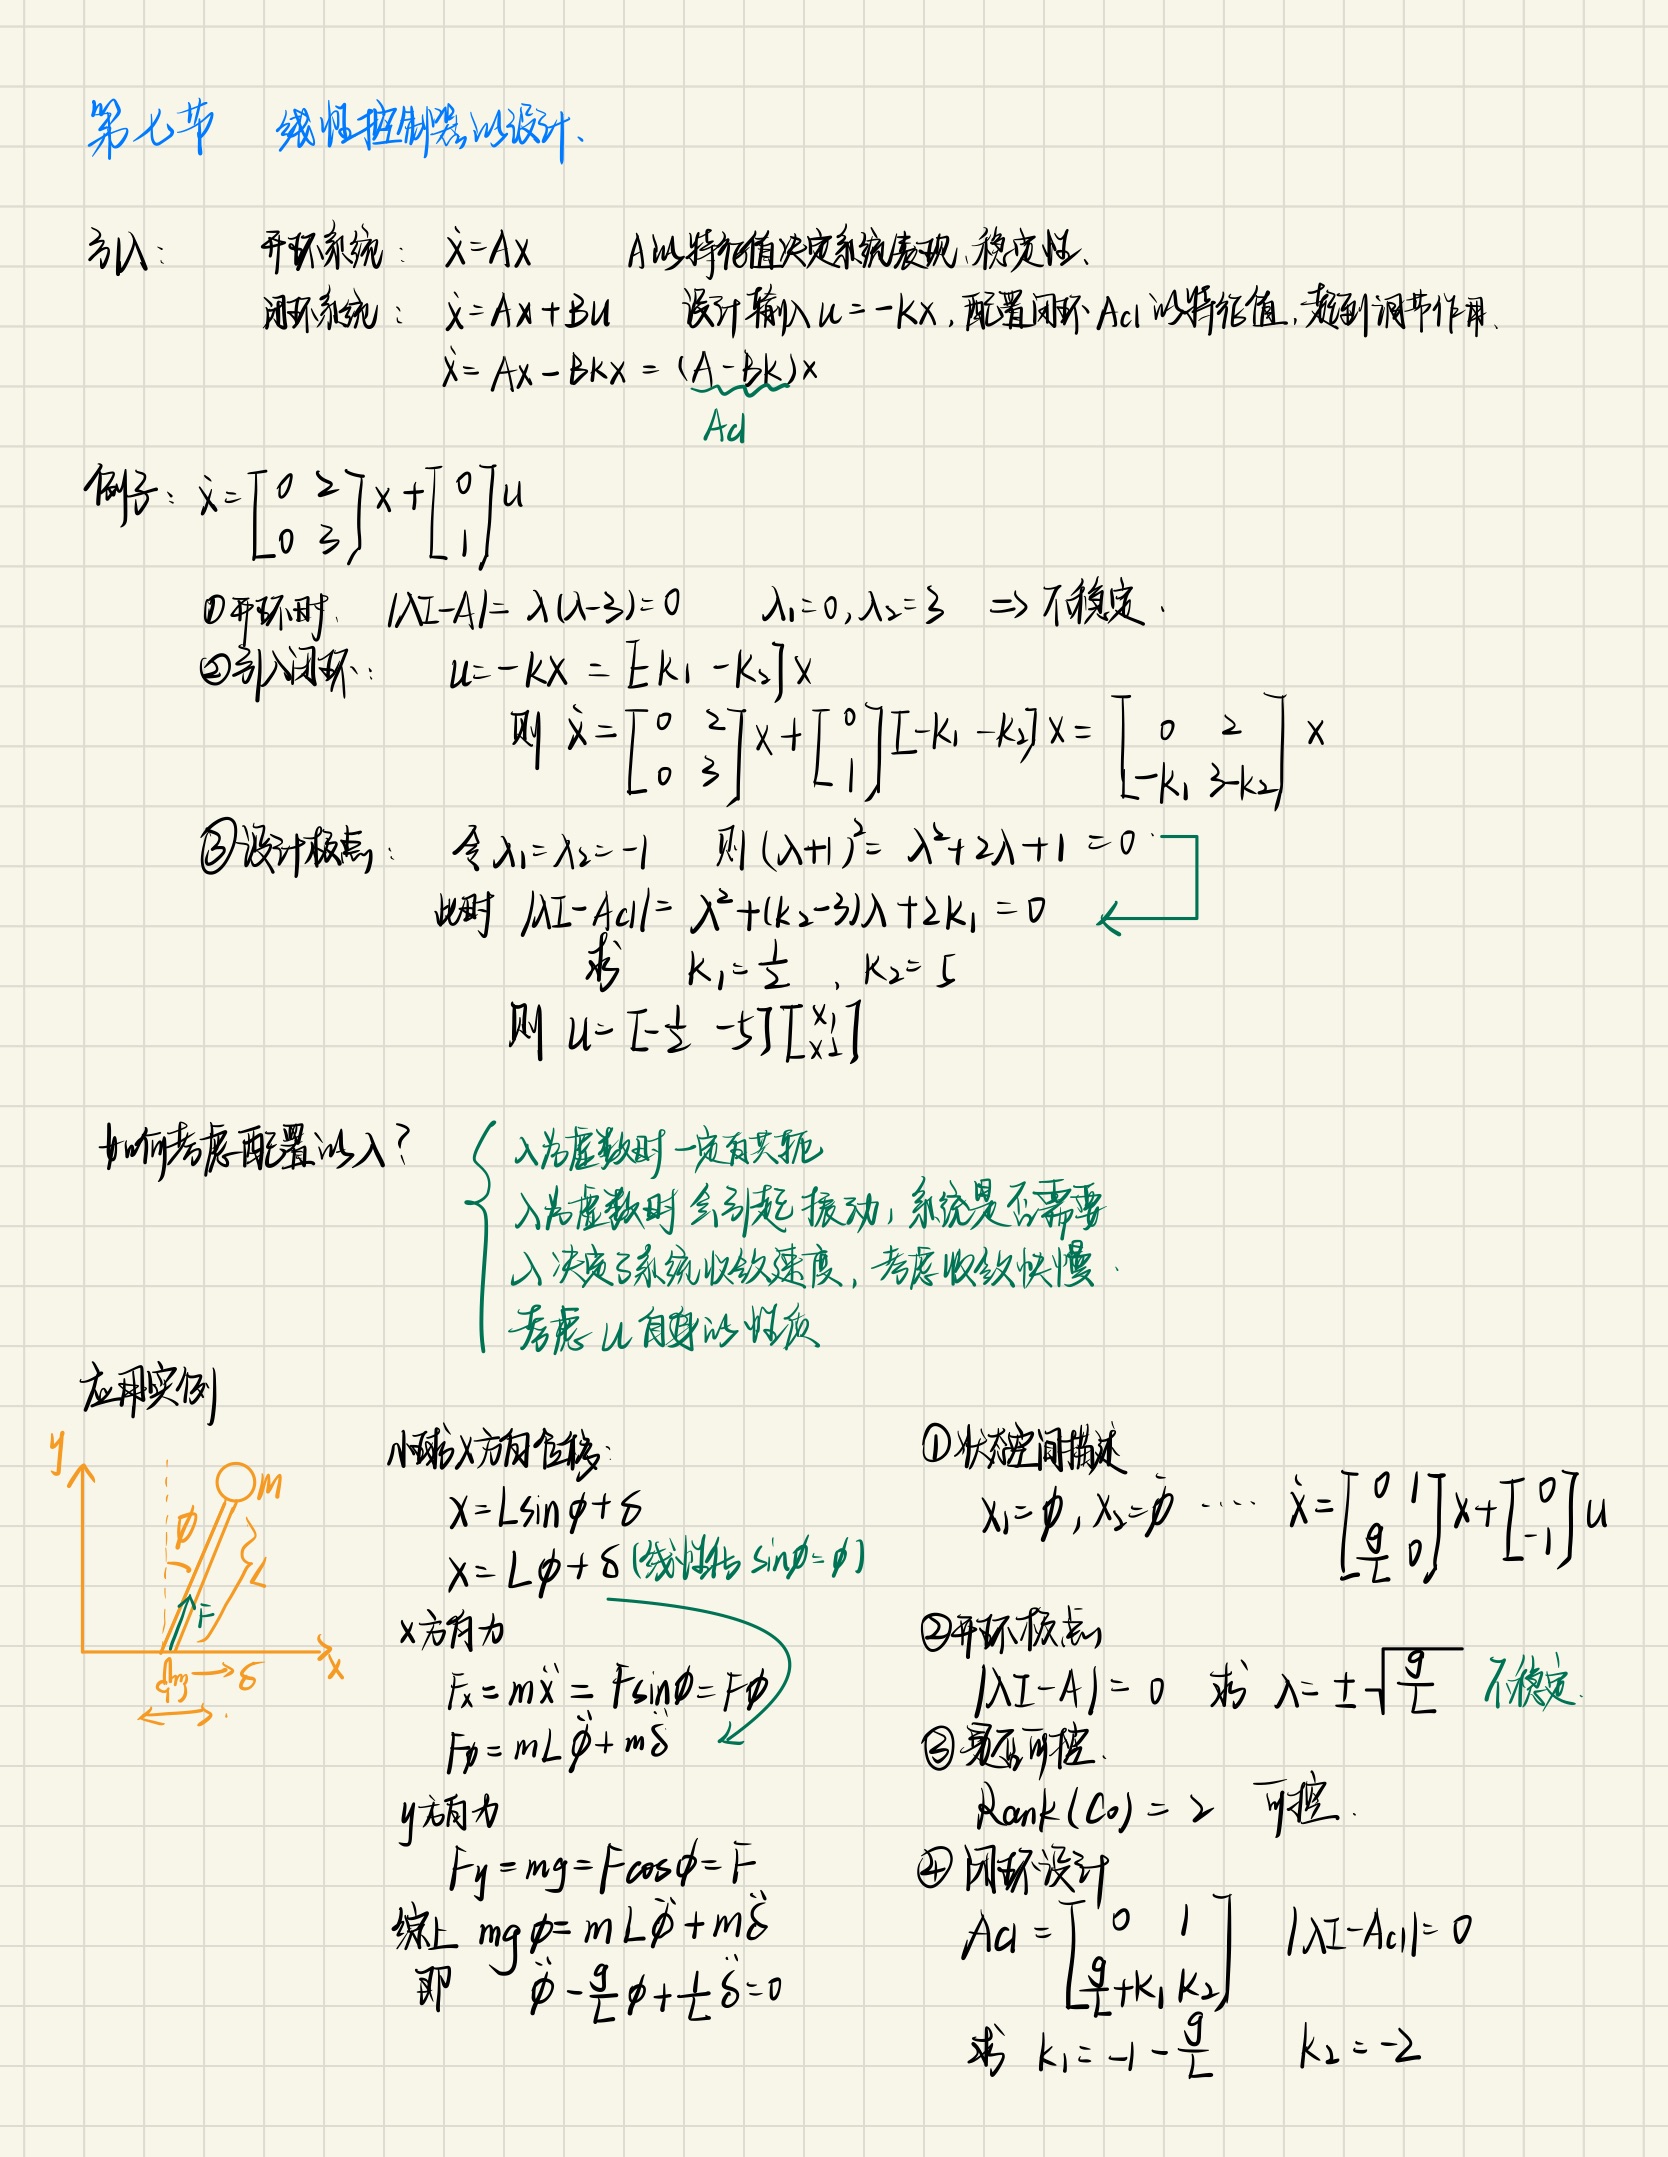 第七节 线性控制器的设计、
引入： 开环系统： ẋ=Ax A的特征值决定系统表现、稳定性、
闭环系统： ẋ=Ax+Bu 设计输入u=-kx，配置闭环Acl的特征值，起到调节作用、
ẋ=Ax-Bkx=(A-Bk)x
Acl
例子： ẋ=[0 2; 0 3]x+[0; 1]u
①开环时. |λI-A|=λ(λ-3)=0 λ₁=0,λ₂=3 => 不稳定.
②引入闭环： u=-kx=[-k₁ -k₂]x
则 ẋ=[0 2; 0 3]x+[0; 1][-k₁ -k₂]x=[0 2; -k₁ 3-k₂]x
③设计极点： 令λ₁=λ₂=-1 则(λ+1)²=λ²+2λ+1=0
此时 |λI-Acl|=λ²+(k₂-3)λ+2k₁=0
求 k₁=1/2 , k₂=5
则 u=[-1/2 -5][x₁; x₂]
如何考虑配置的λ?
λ为虚数时一定有共轭
λ为虚数时会引起振动，系统是否需要
λ决定了系统收敛速度，考虑收敛快慢.
考虑u自身的性质
应用实例
y
m
ϕ
L
F
x
δ
小球x方向位移：
x=Lsinϕ+δ
x=Lϕ+δ(线性化 sinϕ=ϕ)
x方向力
Fx=mẍ=Fsinϕ=Fϕ
Fϕ=mLϕ̈+mδ̈
y方向力
Fy=mg=Fcosϕ=F
综上 mgϕ=mLϕ̈+mδ̈
即 ϕ̈-g/Lϕ+1/Lδ̈=0
①状态空间描述
x₁=ϕ,x₂=ϕ̇ ···· ẋ=[0 1; g/L 0]x+[0; -1]u
②开环极点
|λI-A|=0 求 λ=±√(g/L) 不稳定.
③是否可控.
Rank(Co)=2 可控.
④闭环设计
Acl=[0 1; g/L+k₁ k₂] |λI-Acl|=0
求 k₁=-1-g/L k₂=-2